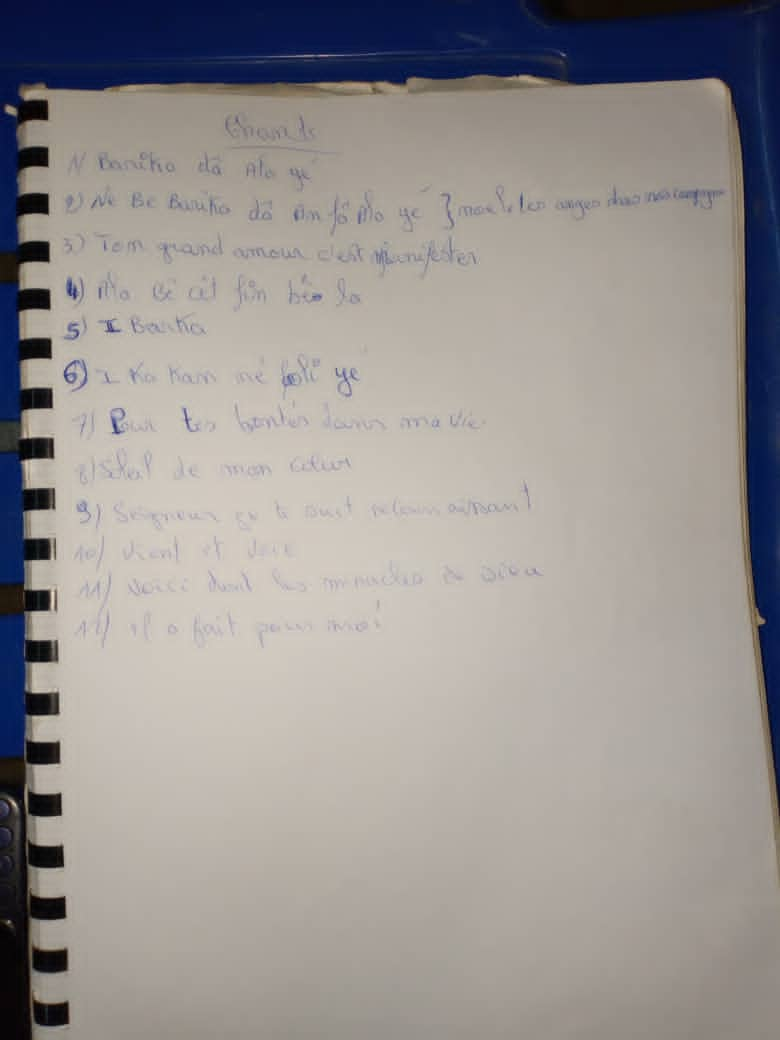 Chants
1/ Barika dâ Ala yé
2) Ne Be Barika dâ An fâ Ala yé } les anges dans nos campagne
3) Ton grand amour c'est Manifester
4) Ala Bé fin bèe la
5) I Barika
6) I Ka Kan né foli yé
7) Pour tes bontés dans ma vie
8) Soleil de mon cœur
9) Seigneur te suit reconnaissant
10/ Vient et voie
11/ Voici dont les miracles de Dieu
12/ il a fait pour moi